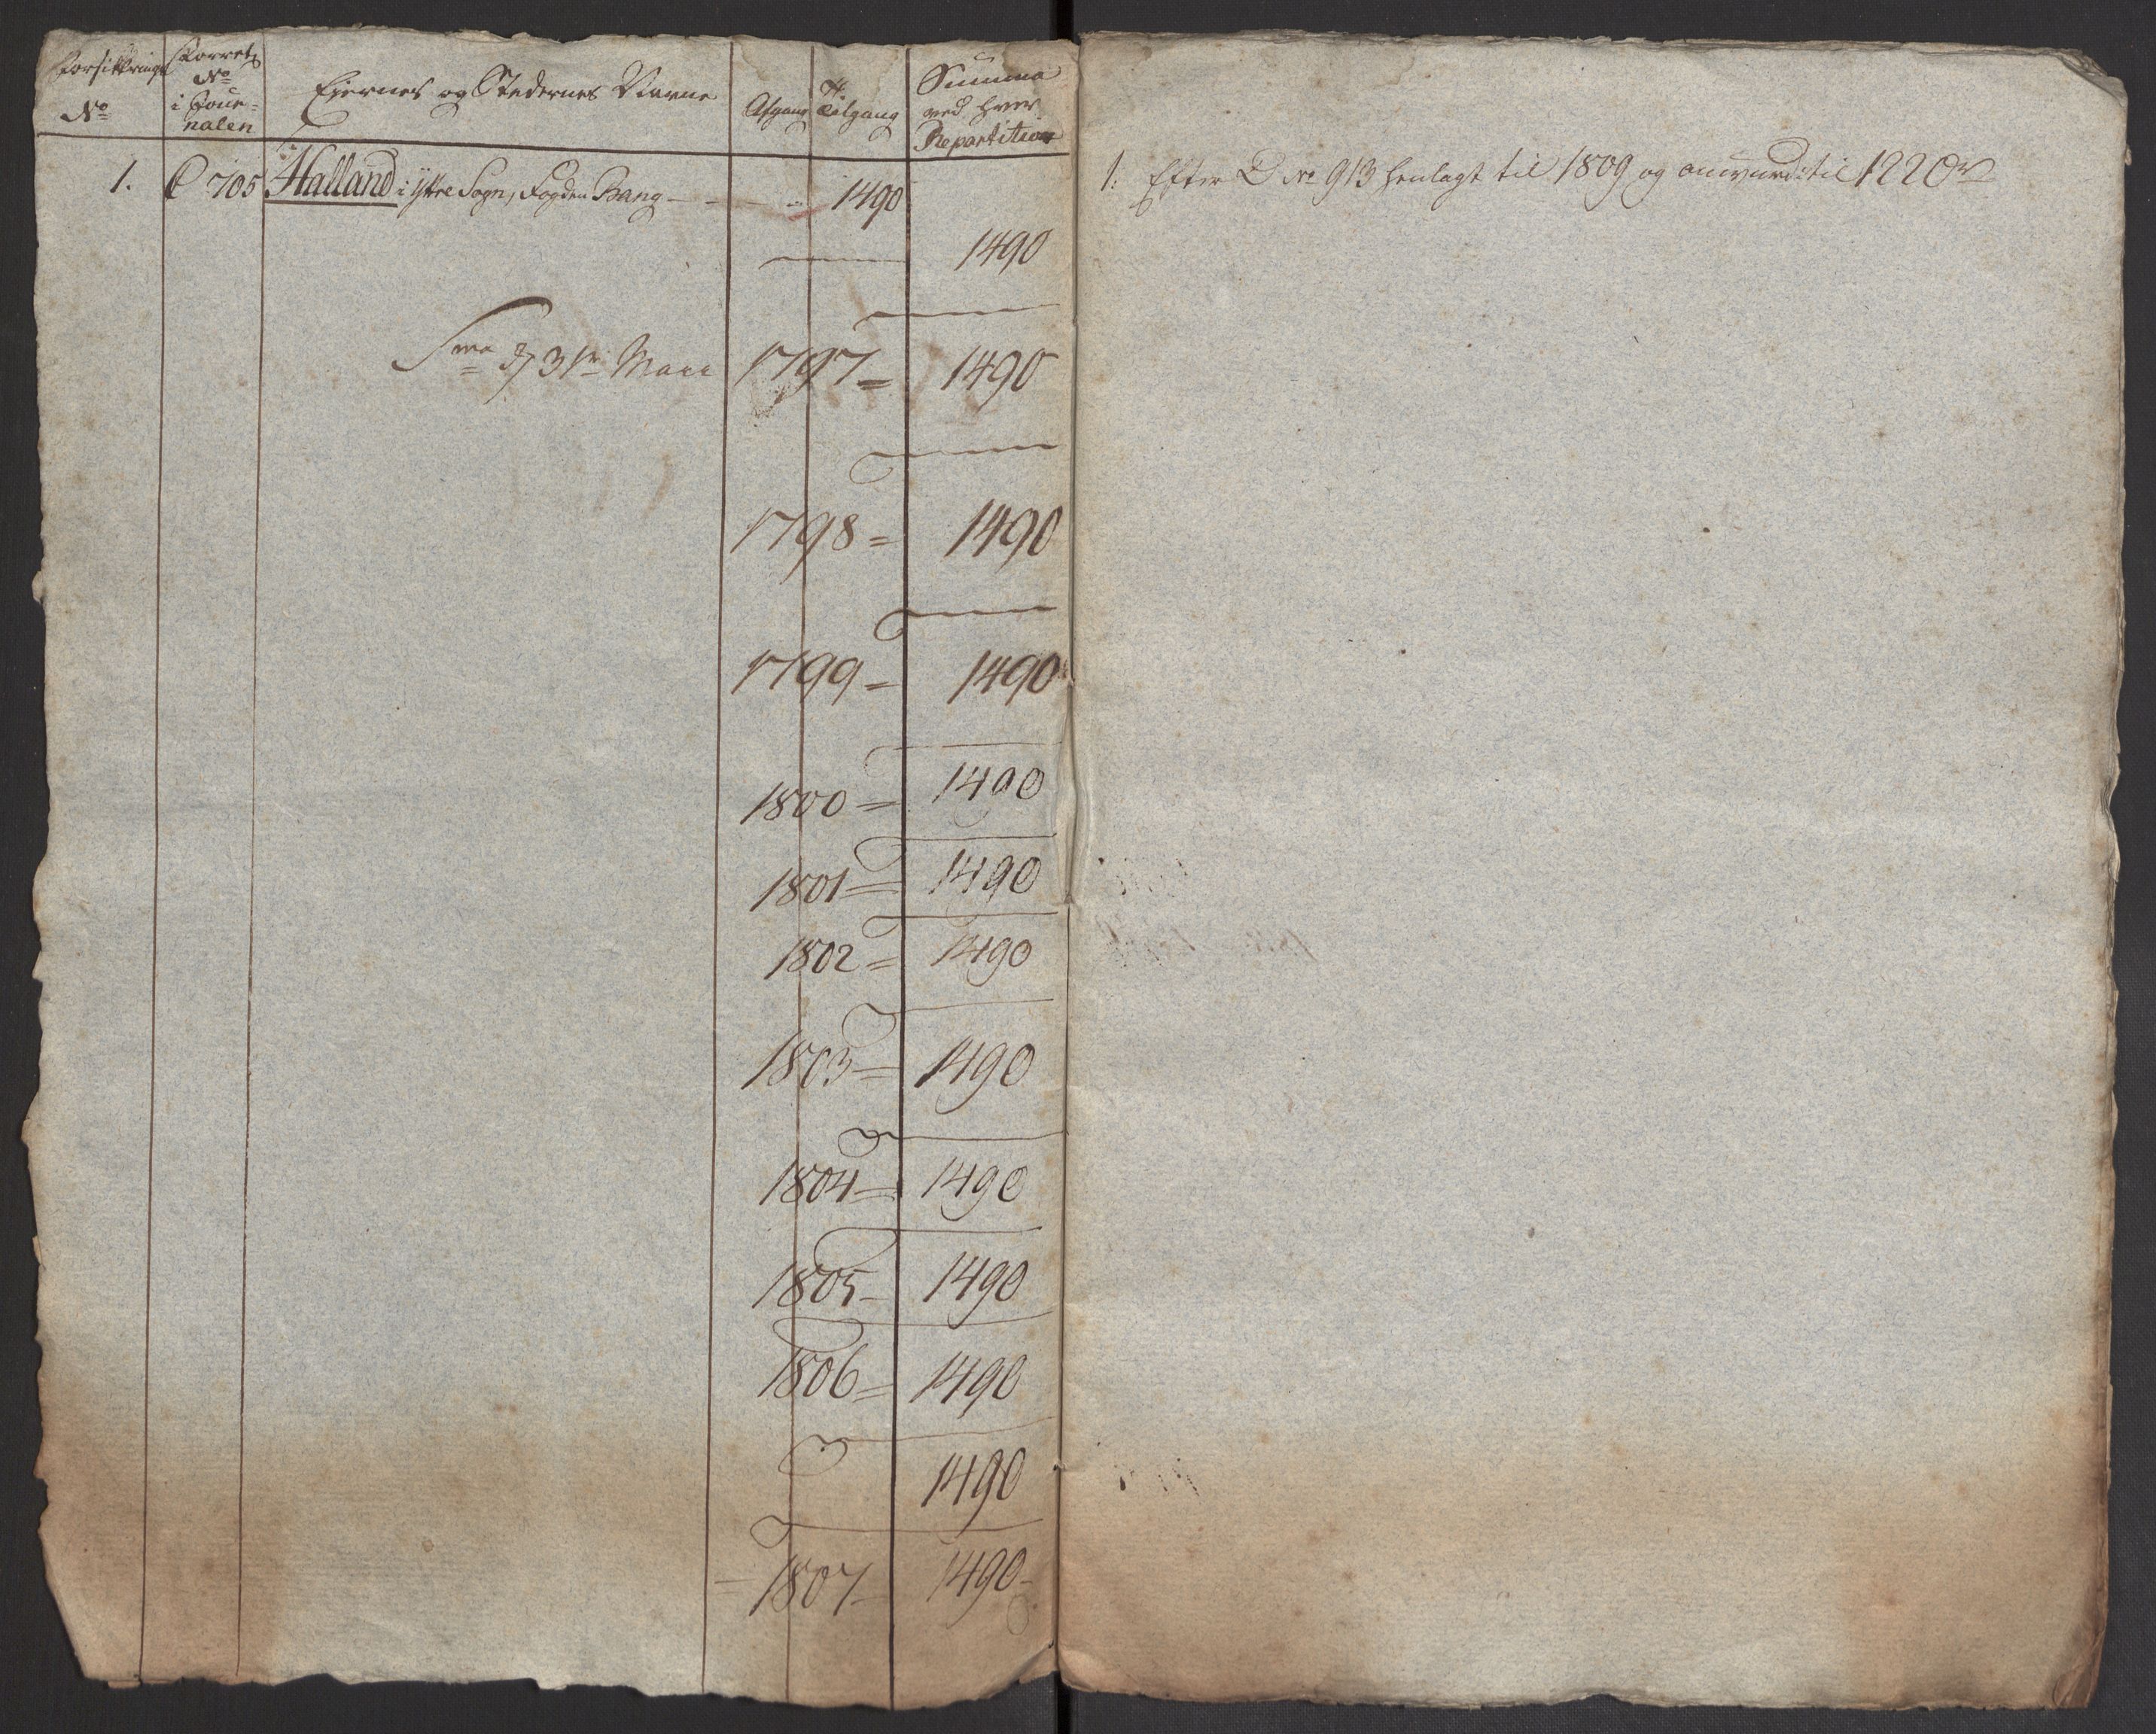 Forsikrings No
Forrets No i Joue-nalen
Ejernes og Stedernes Navne
Afgang
Tilgang
Summa ved hver Repartition
1. C 705 Halland i Yttre Sogn, Fogden Bang - - - 1490
1490
Sma d/ 31te Marti 1797 = 1490
1798 = 1490
1799 = 1490
1800 = 1490
1801 = 1490
1802 = 1490
1803 = 1490
1804 = 1490
1805 - 1490
1806 = 1490
1490
- 1807 - 1490 -
1. Efter D No 913 henlagt til 1809 og omvurd: til 1220 r